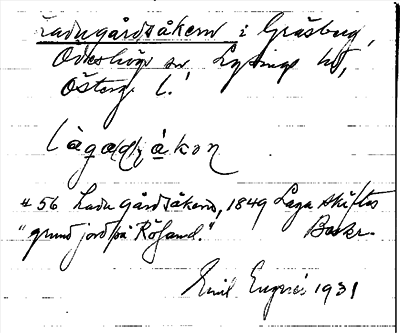 Ladugårdsåkern i Gräsbug,
Ödeshögs sn Lysings hd,
Österg. l.
# 56 Ladugårdsåkern, 1849 Laga skiftes
"grund jord på Rösand." Beskr.
Emil 1931